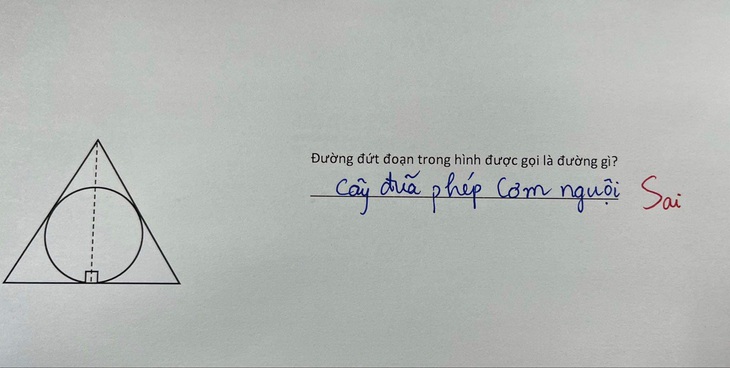 Đường đứt đoạn trong hình được gọi là đường gì?
Cây đũa phép Cơm nguội Sai